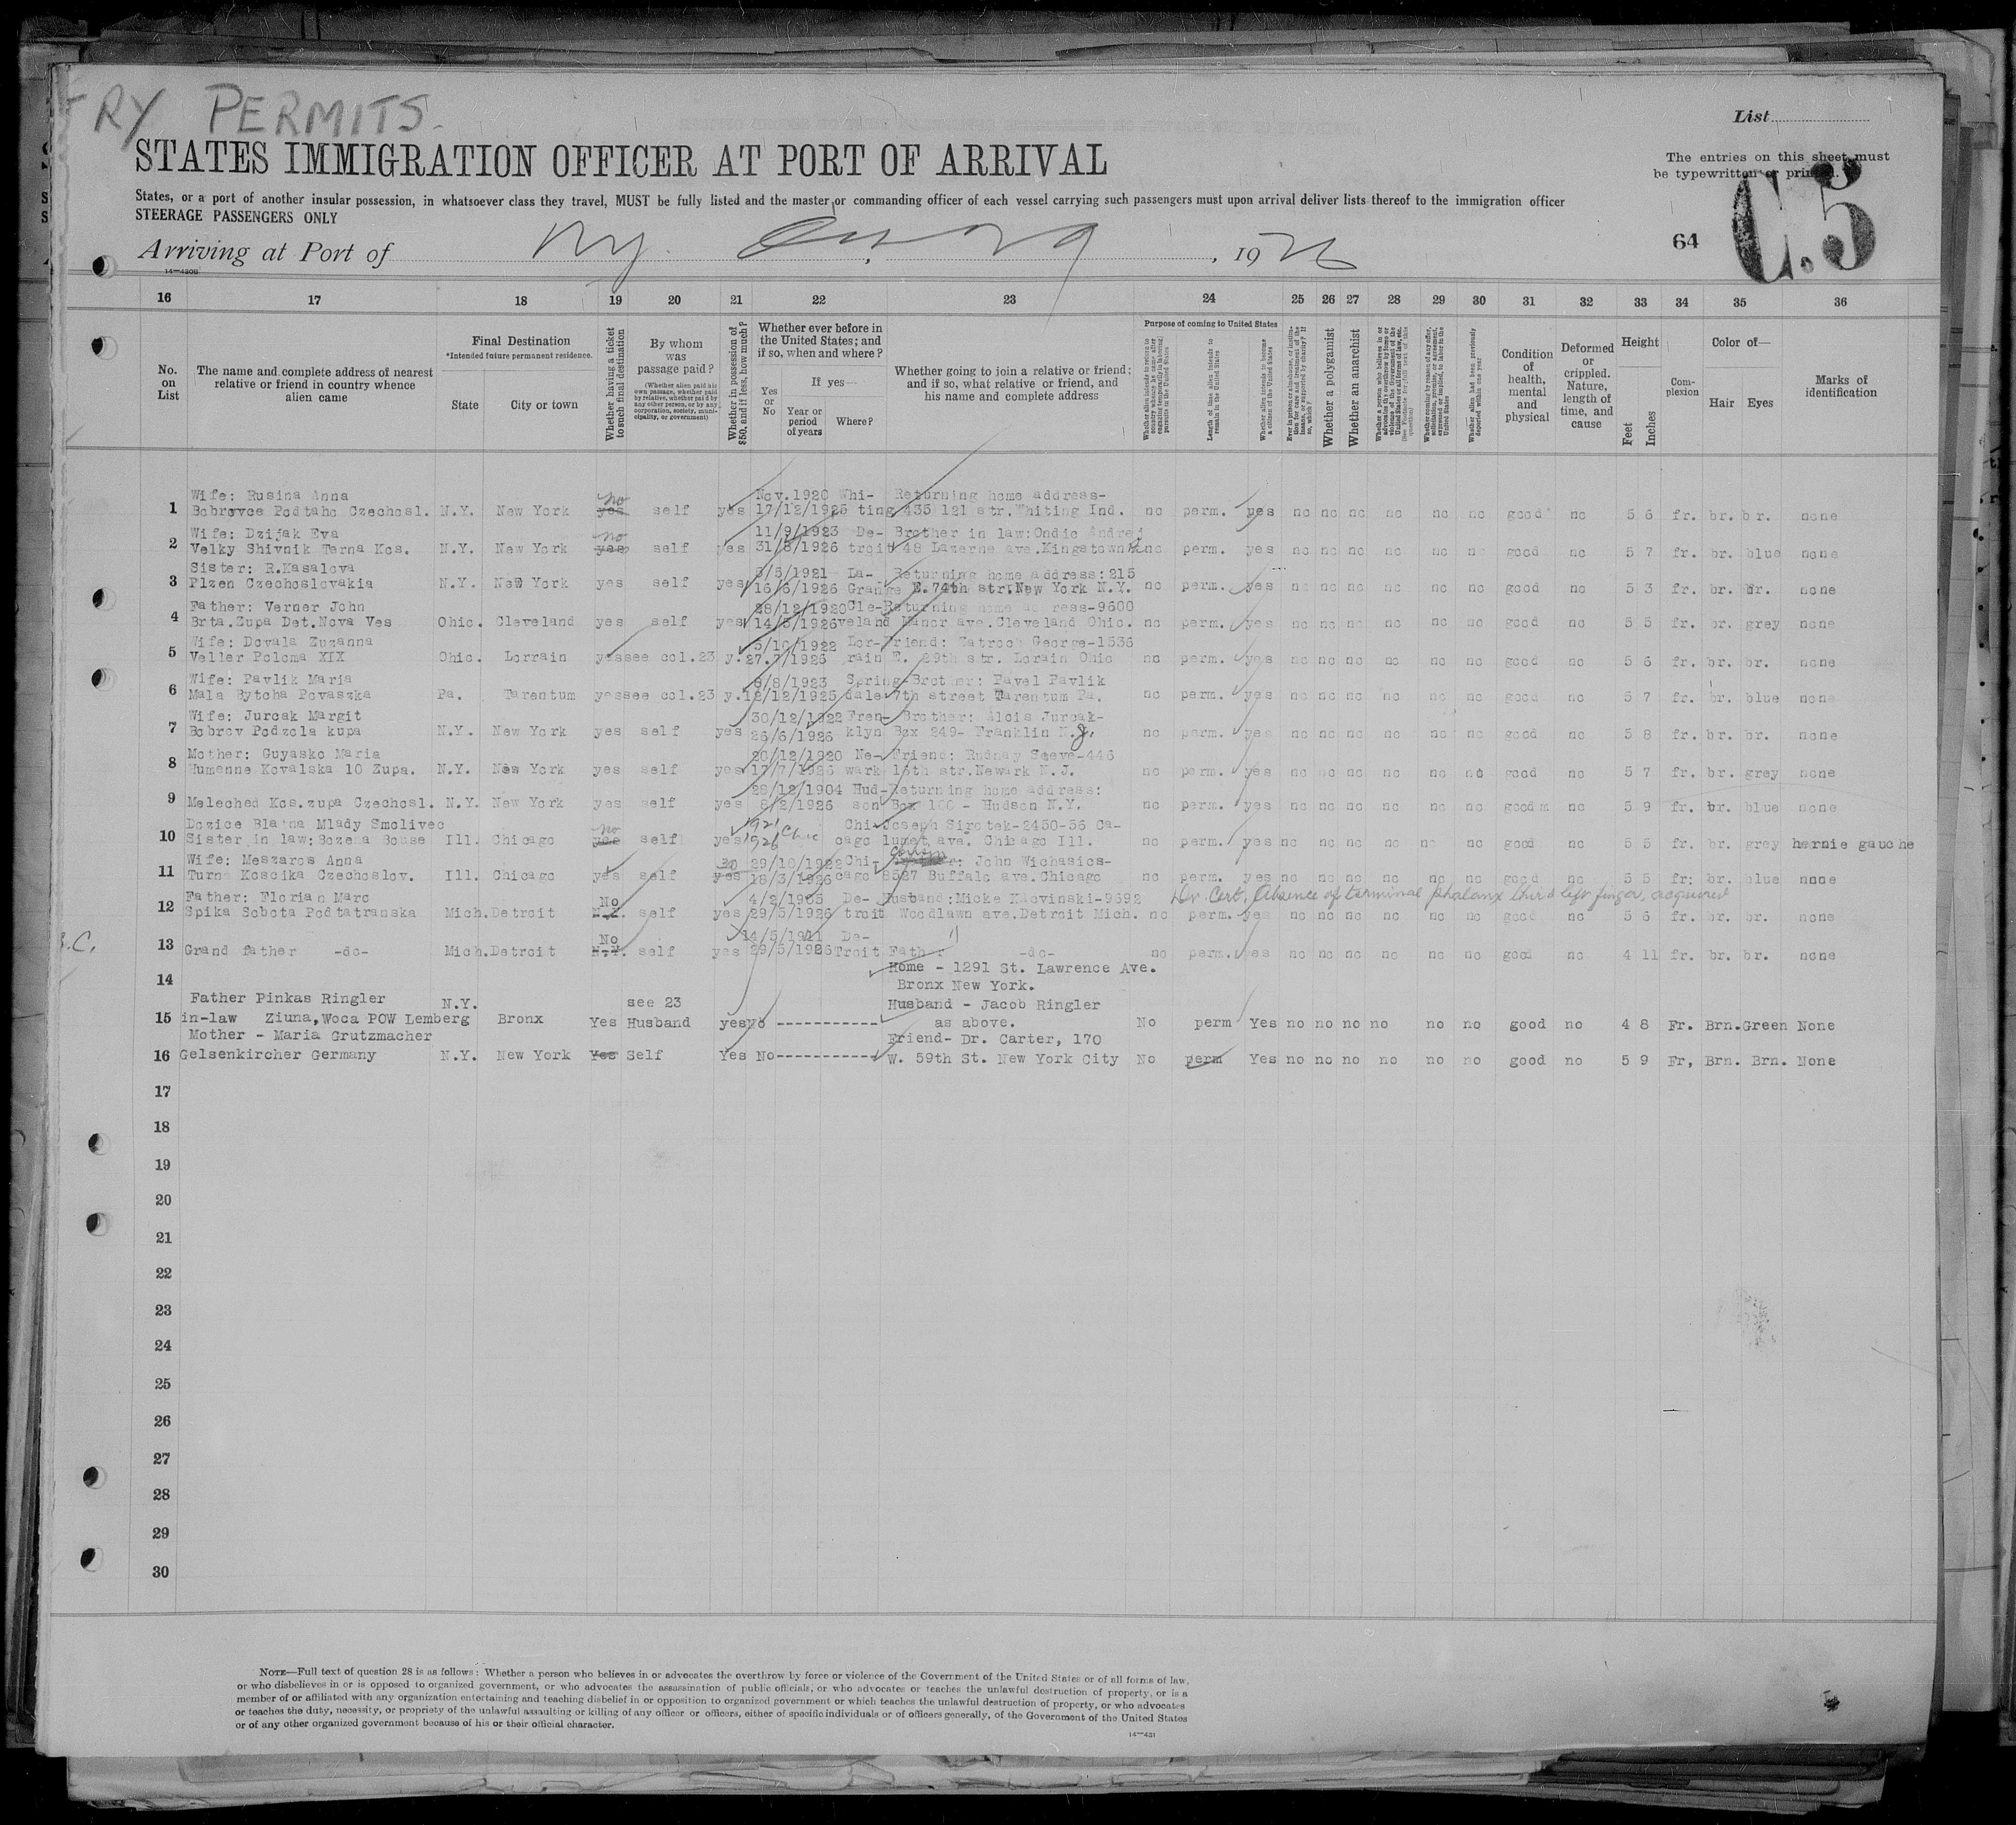 RY PERMITS.
List
STATES IMMIGRATION OFFICER AT PORT OF ARRIVAL
The entries on this sheet must
be typewritten or printed.
C.5
States, or a port of another insular possession, in whatsoever class they travel, MUST be fully listed and the master or commanding officer of each vessel carrying such passengers must upon arrival deliver lists thereof to the immigration officer
STEERAGE PASSENGERS ONLY
64
Arriving at Port of N.Y. , 1926
14—430B
16 17 18 19 20 21 22 23 24 25 26 27 28 29 30 31 32 33 34 35 36
No. on List
The name and complete address of nearest relative or friend in country whence alien came
Final Destination
*Intended future permanent residence.
State
City or town
Whether having a ticket to such final destination
By whom was passage paid?
(Whether alien paid his own passage, whether paid by relative, whether paid by any other person, or by any corporation, society, municipality, or government)
Whether in possession of $50, and if less, how much?
Whether ever before in the United States; and if so, when and where?
Yes or No
If yes—
Year or period of years
Where?
Whether going to join a relative or friend; and if so, what relative or friend, and his name and complete address
Purpose of coming to United States
Length of time alien intends to remain in the United States
Whether alien intends to become a citizen of the United States
Whether a polygamist
Whether an anarchist
Whether alien had been previously deported within one year
Condition of health, mental and physical
Deformed or crippled. Nature, length of time, and cause
Height
Feet
Inches
Complexion
Color of—
Hair
Eyes
Marks of identification
Wife: Rusina Anna no Nov.1920 Whi- Returning home address-
1 Bobrovce Podtaho Czechosl. N.Y. New York yes self yes 17/12/1925 ting 435 121 str.Whiting Ind. no perm. yes no no no no no no good no 5 6 fr. br. br. none
Wife: Dzijak Eva no 11/9/1923 De- Brother in law:Ondic Andrej
2 Velky Shivnik Terna Kos. N.Y. New York yes self yes 31/8/1926 troit 48 Lazerne ave.Kingstown no perm. yes no no no no no no good no 5 7 fr. br. blue none
Sister: R.Kasalova 5/5/1921 La- Returning home address:215
3 Plzen Czechoslovakia N.Y. New York yes self yes 16/6/1926 Grange E.74th str.New York N.Y. no perm. yes no no no no no no good no 5 3 fr. br. br. none
Father: Verner John 28/12/1920 Cle- Returning home address-9600
4 Brta.Zupa Det.Nova Ves Ohio. Cleveland yes self yes 14/5/1926 veland Manor ave.Cleveland Ohio. no perm. yes no no no no no no good no 5 5 fr. br. grey none
Wife: Dovala Zuzanna 5/10/1922 Lor- Friend: Zatroch George-1536
5 Veller Poloma XIX Ohio. Lorrain yes see col.23 y. 27.7/1926 rain E. 29th str. Lorain Ohio no perm. yes no no no no no no good no 5 6 fr. br. br. none
Wife: Pavlik Maria 8/8/1923 Spring- Brother: Pavel Pavlik
6 Mala Bytcha Povaszka Pa. Tarentum yes see col.23 y. 12/12/1925 dale 7th street Tarentum Pa. no perm. yes no no no no no no good no 5 7 fr. br. blue none
Wife: Jurcak Margit 30/12/1922 Fren- Brother: Alois Jurcak-
7 Bobrov Podzola kupa N.Y. New York yes self yes 26/6/1926 klyn Box 249- Franklin N.J. no perm. yes no no no no no no good no 5 8 fr. br. br. none
Mother: Guyasko Maria 20/12/1920 Ne- Friend: Rudnay Steve-446
8 Humenne Kovalska 10 Zupa. N.Y. New York yes self yes 17/7/1926 wark 16th str.Newark N.J. no perm. yes no no no no no no good no 5 7 fr. br. grey none
28/12/1904 Hud- Returning home address:
9 Meleched Kos.zupa Czechosl. N.Y. New York yes self yes 8/2/1926 son Box 160 - Hudson N.Y. no perm. yes no no no no no no good no 5 9 fr. br. blue none
Dozice Blatna Mlady Smolivec no 1921 Chic Chi- Joseph Sirotek-2450-56 Ca-
10 Sister in law:Bozena Bouse Ill. Chicago yes self yes 1926 cago lumet ave. Chicago Ill. no perm. yes no no no no no no good no 5 5 fr. br. grey hernie gauche
Wife: Meszaros Anna 30 29/12/1922 Chi- Cousin: John Wichasics-
11 Turna Koscika Czechoslov. Ill. Chicago yes self yes 18/3/1926 cago 8527 Buffalo ave.Chicago no perm. yes no no no no no no good no 5 5 fr. br. blue none
Father: Florian Marc No 4/2/1905 De- Husband:Micke Klovinski-9592 Dr Cert. Absence of terminal phalanx third left finger, acquired
12 Spika Sobota Podtatranska Mich. Detroit N.Y. self yes 29/5/1926 troit Woodlawn ave.Detroit Mich. no perm. yes no no no no no no good no 5 6 fr. br. br. none
No 14/5/1911 De-
13 Grand father -do- Mich. Detroit N.Y. self yes 29/5/1926 Troit Father -do- no perm. yes no no no no no no good no 4 11 fr. br. br. none
Home - 1291 St. Lawrence Ave.
14 Bronx New York.
Father Pinkas Ringler N.Y. see 23 Husband - Jacob Ringler
15 in-law Ziuna, Woca POW Lemberg Bronx Yes Husband yes No ------------ as above. No perm Yes no no no no no no good no 4 8 Fr. Brn. Green None
Mother - Maria Grutzmacher Friend- Dr. Carter, 170
16 Gelsenkircher Germany N.Y. New York Yes Self Yes No ----------- W. 59th St. New York City No perm Yes no no no no no no good no 5 9 Fr, Brn. Brn. None
17
18
19
20
21
22
23
24
25
26
27
28
29
30
NOTE—Full text of question 28 is as follows: Whether a person who believes in or advocates the overthrow by force or violence of the Government of the United States or of all forms of law,
or who disbelieves in or is opposed to organized government, or who advocates the assassination of public officials, or who advocates or teaches the unlawful destruction of property, or is a
member of or affiliated with any organization entertaining and teaching disbelief in or opposition to organized government or which teaches the unlawful destruction of property, or who advocates
or teaches the duty, necessity, or propriety of the unlawful assaulting or killing of any officer or officers, either of specific individuals or of officers generally, of the Government of the United States
or of any other organized government because of his or their official character.
14—431